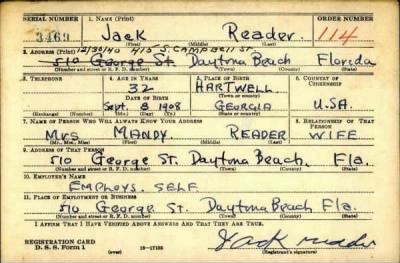 SERIAL NUMBER 1. NAME (Print) ORDER NUMBER
3469 Jack Reader 114
(First) (Middle) (Last)
2. ADDRESS (Print) 12/30/40 415 S. Campbell St.
510 George St. Daytona Beach Florida
(Number and street or R. F. D. number) (Town) (County) (State)
3. TELEPHONE 4. AGE IN YEARS 5. PLACE OF BIRTH 6. COUNTRY OF CITIZENSHIP
32 HARTWELL
DATE OF BIRTH (Town or county)
Sept. 8 1908 GEORGIA U.S.A.
(Exchange) (Number) (Mo.) (Day) (Yr.) (State or country)
7. NAME OF PERSON WHO WILL ALWAYS KNOW YOUR ADDRESS 8. RELATIONSHIP OF THAT PERSON
Mrs MANDY READER WIFE
(Mr., Mrs., Miss) (First) (Middle) (Last)
9. ADDRESS OF THAT PERSON
510 George St. Daytona Beach, Fla.
(Number and street or R. F. D. number) (Town) (County) (State)
10. EMPLOYER'S NAME
EMPLOYS. SELF
11. PLACE OF EMPLOYMENT OR BUSINESS
510 George St. Daytona Beach Fla.
(Number and street or R. F. D. number) (Town) (County) (State)
I AFFIRM THAT I HAVE VERIFIED ABOVE ANSWERS AND THAT THEY ARE TRUE.
REGISTRATION CARD
D. S. S. Form 1 (over) 16-17105 Jack reader
(Registrant's signature)